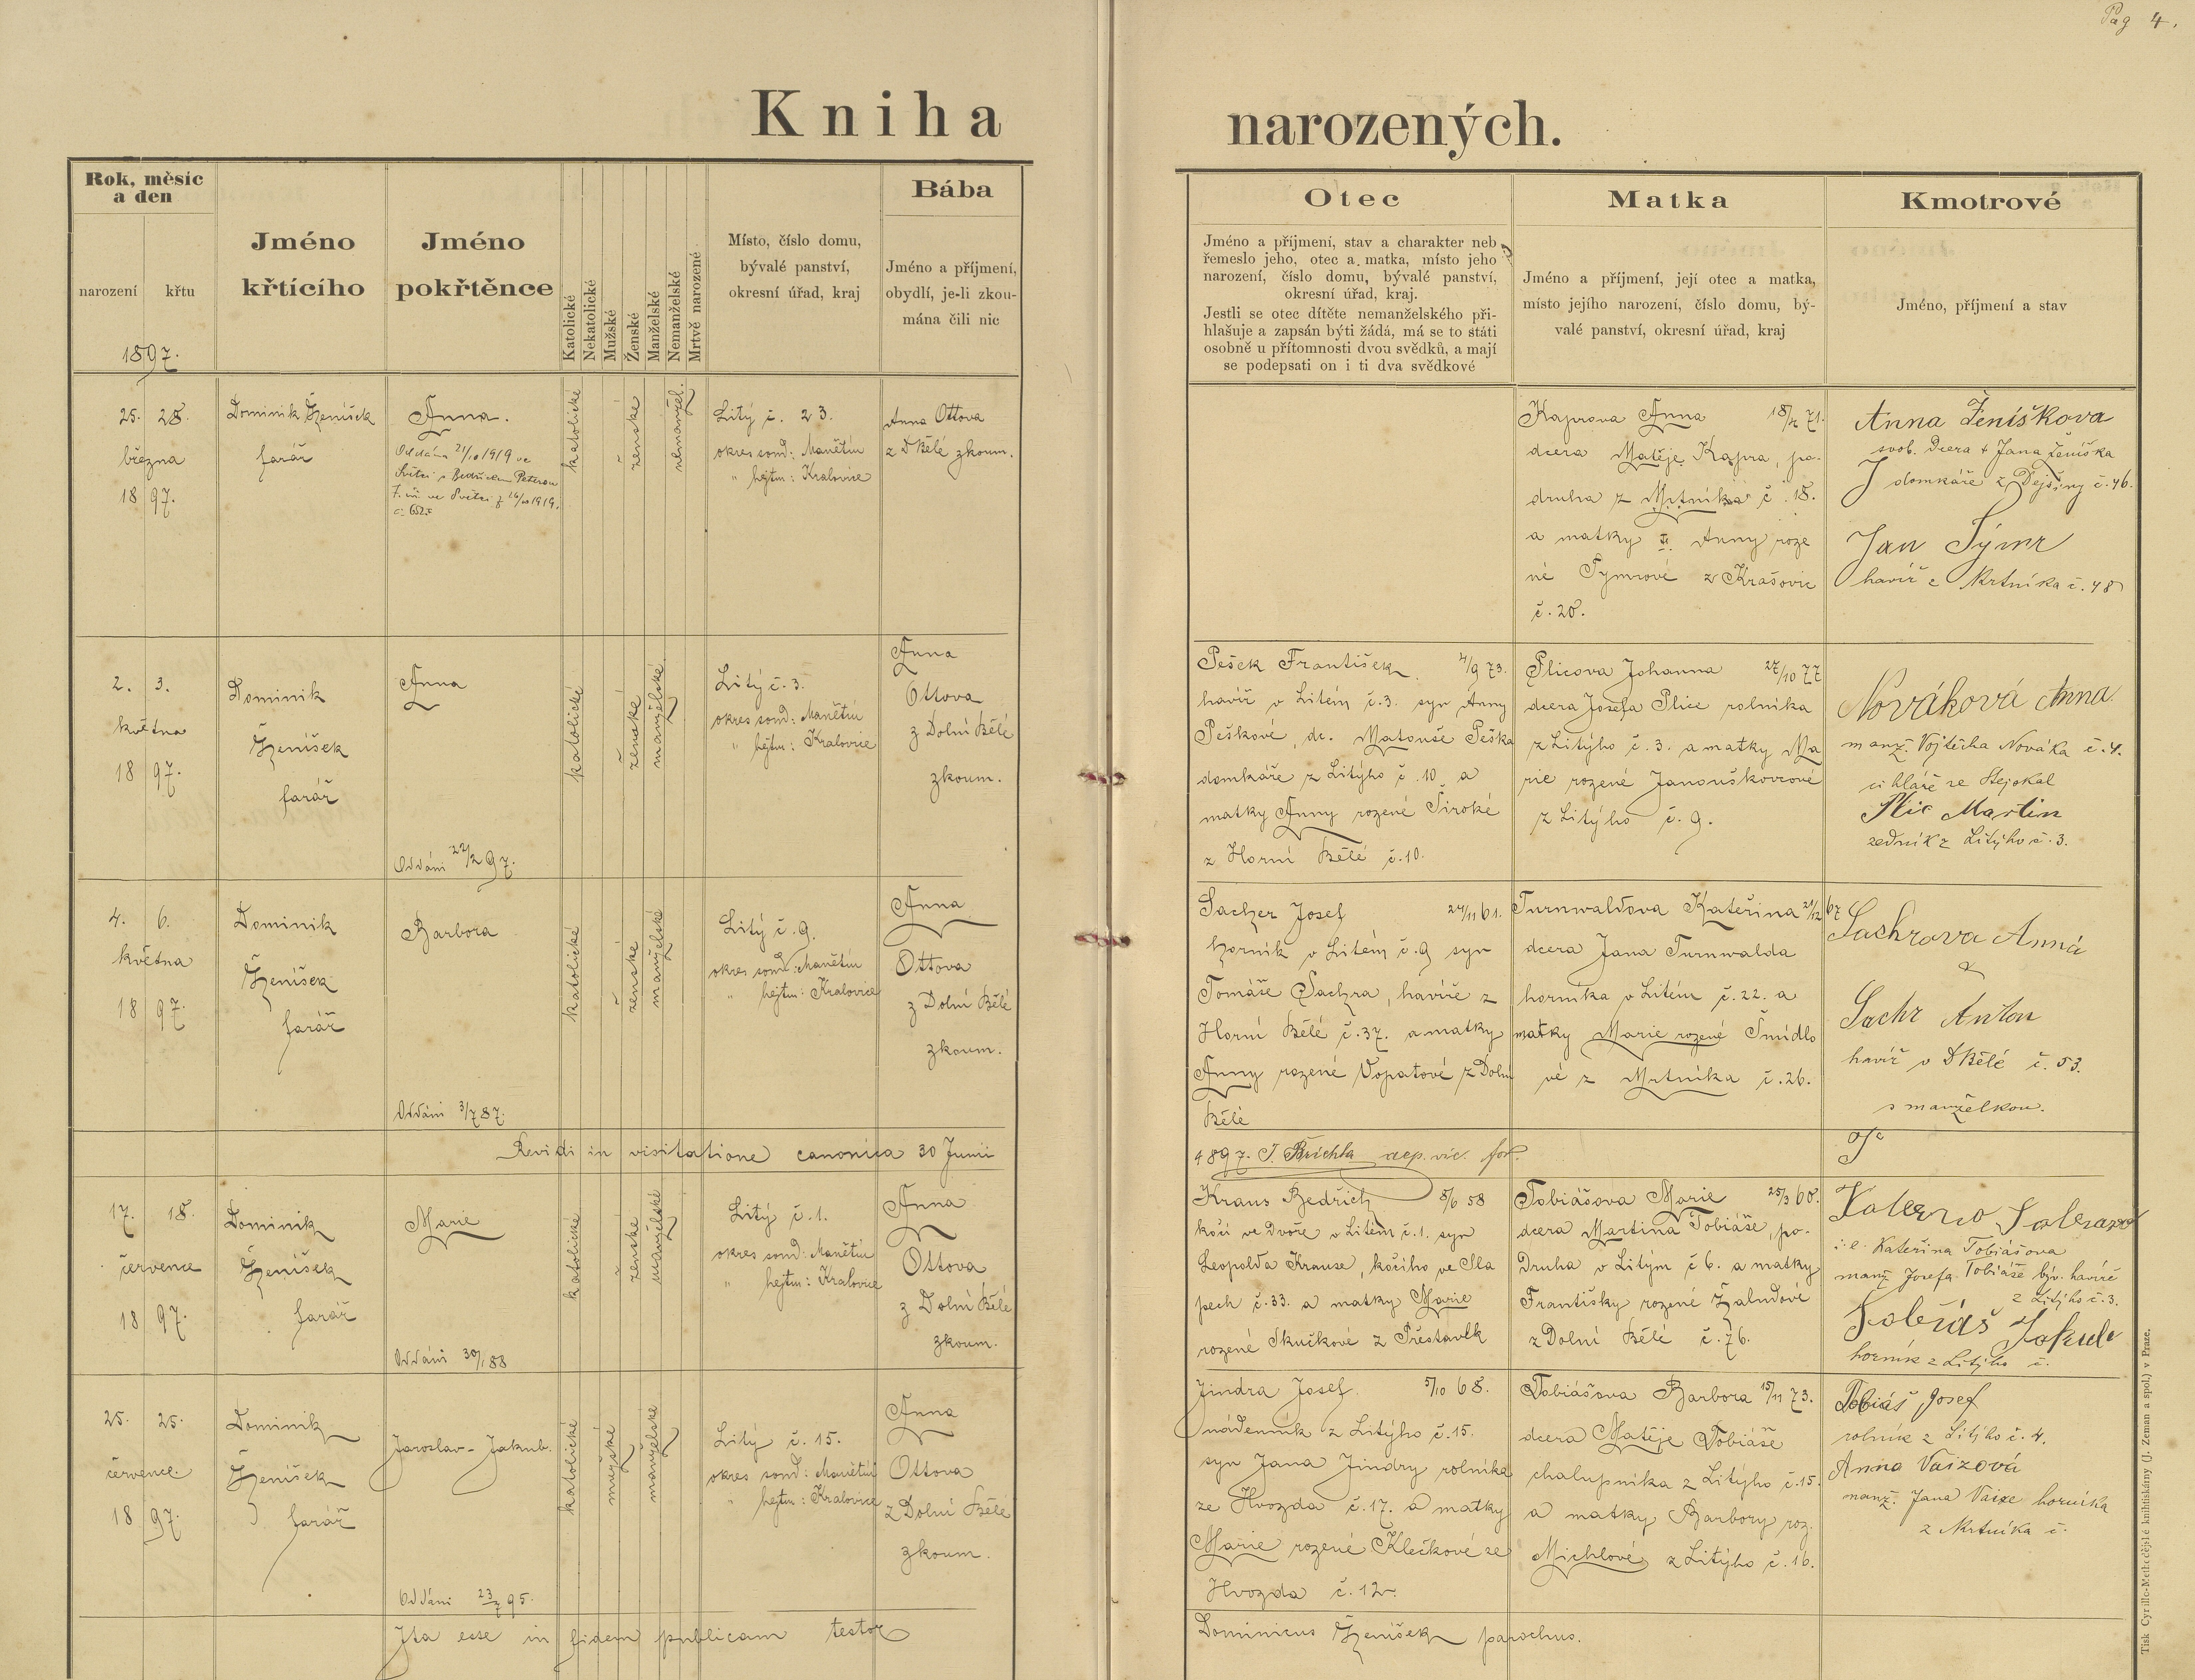 Pag 4.
Kniha narozených.
Rok, měsíc
a den
narození
křtu
1897.
Jméno
křtícího
Jméno
pokřtěnce
Katolické
Nekatolické
Mužské
Ženské
Manželské
Nemanželské
Mrtvě narozené
Místo, číslo domu,
bývalé panství,
okresní úřad, kraj
Bába
Jméno a příjmení,
obydlí, je-li zkou-
mána čili nic
Otec
Jméno a příjmení, stav a charakter neb
řemeslo jeho, otec a matka, místo jeho
narození, číslo domu, bývalé panství,
okresní úřad, kraj.
Jestli se otec dítěte nemanželského při-
hlašuje a zapsán býti žádá, má se to státi
osobně u přítomnosti dvou svědků, a mají
se podepsati on i ti dva svědkové
Matka
Jméno a příjmení, její otec a matka,
místo jejího narození, číslo domu, bý-
valé panství, okresní úřad, kraj
Kmotrové
Jméno, příjmení a stav
25. 28.
března
18 97.
Dominik Ženíšek
farář
Anna.
Oddána 21/10 1919 ve
Světci s Bedřichem Peterou
f. úř. ve Světci z 26/10 1919.
katolické
ženské
nemanžel.
Litý č. 23.
okres soud: Manětín
" hejtm: Kralovice
Anna Ottova
z D Bělé zkoum.
Kaprova Anna 18/2 71.
dcera Matěje Kapra, po-
druha z Mrtníka č. 18.
a matky Anny roze
né Symrové z Krašovic
č. 20.
Anna Ženíškova
svob. dcera † Jana Ženíška
domkáře z Dejšiny č. 46.
Jan Sýmr
havíř z Mrtníka č. 48
2. 3.
května
18 97.
Dominik
Ženíšek
farář
Anna
Oddáni 22/2 97.
katolické
ženské
manželské
Litý č. 3.
okres soud: Manětín
" hejtm: Kralovice
Anna
Ottova
z Dolní Bělé
zkoum.
Pešek František 4/9 73.
havíř v Litém č. 3. syn Anny
Peškové, dc. Matouše Peška
domkáře z Litýho č. 10 a
matky Anny rozené Široké
z Horní Bělé č. 10.
Plicova Johanna 27/10 77
dcera Josefa Plice rolníka
z Litýho č. 3. a matky Ma
rie rozené Janouškovcové
z Litýho č. 9.
Nováková Anna
manž. Vojtěcha Nováka č. 4.
cihláře ze Stejokal
Plic Martin
zedník z Litýho č. 3.
4. 6.
května
18 97.
Dominik
Ženíšek
farář
Barbora
Oddáni 3/7 87.
katolické
ženské
manželské
Litý č. 9.
okres soud: Manětín
" hejtm: Kralovice
Anna
Ottova
z Dolní Bělé
zkoum.
Sacher Josef 24/11 61.
horník v Litém č. 9 syn
Tomáše Sachra, havíře z
Horní Bělé č. 37. a matky
Anny rozené Vopatové z Dolní
Bělé
Turnwaldova Kateřina 21/12 67
dcera Jana Turnwalda
horníka v Litém č. 22. a
matky Marie rozené Šmídlo
vé z Mrtníka č. 26.
Sachrova Anná
&
Sachr Anton
havíř v D Bělé č. 53.
s manželkou.
Revidi in visitatione canonica 30 Junii
1897. J. Brichta dep. vic. for.
17. 18.
července
18 97.
Dominik
Ženíšek
farář
Marie
Oddáni 30/1 88
katolické
ženské
manželské
Litý č. 1.
okres soud: Manětín
" hejtm: Kralovice
Anna
Ottova
z Dolní Bělé
zkoum.
Kraus Bedřich 8/6 58
kočí ve Dvoře v Litém č. 1. syn
Leopolda Krause, kočího ve Sla
pech č. 33. a matky Marie
rozené Skučkové z Přestavlk
Tobiášova Marie 25/3 60.
dcera Martina Tobiáše, po-
druha v Litým č 6. a matky
Františky rozené Žaludové
z Dolní Bělé č. 76.
i. e. Kateřina Tobiášova
manž Josefa Tobiáše býv. havíře
z Litýho č. 3.
Tobiáš Jakub
horník z Litýho č.
25. 25.
července.
18 97.
Dominik
Ženíšek
farář
Jaroslav - Jakub.
Oddáni 23/7 95.
katolické
mužské
manželské
Litý č. 15.
okres soud: Manětín
" hejtm: Kralovice
Anna
Ottova
z Dolní Bělé
zkoum.
Jindra Josef 5/10 68.
nádenník z Litýho č. 15.
syn Jana Jindry rolníka
ze Hvozda č. 17. a matky
Marie rozené Klečkové ze
Hvozda č. 12
Tobiášova Barbora 15/11 73.
dcera Matěje Tobiáše
chalupníka z Litýho č. 15
a matky Barbory roz.
Michlové z Litýho č. 16.
Tobiáš Josef
rolník z Litýho č. 4.
Anna Vaizová
manž. Jana Vaize horníka
z Mrtníka č.
Ita esse in fidem publicam testor
Dominicus Ženíšek parochus.
Tisk Cyrillo-Methodějské knihtiskárny (J. Zeman a spol.) v Praze.